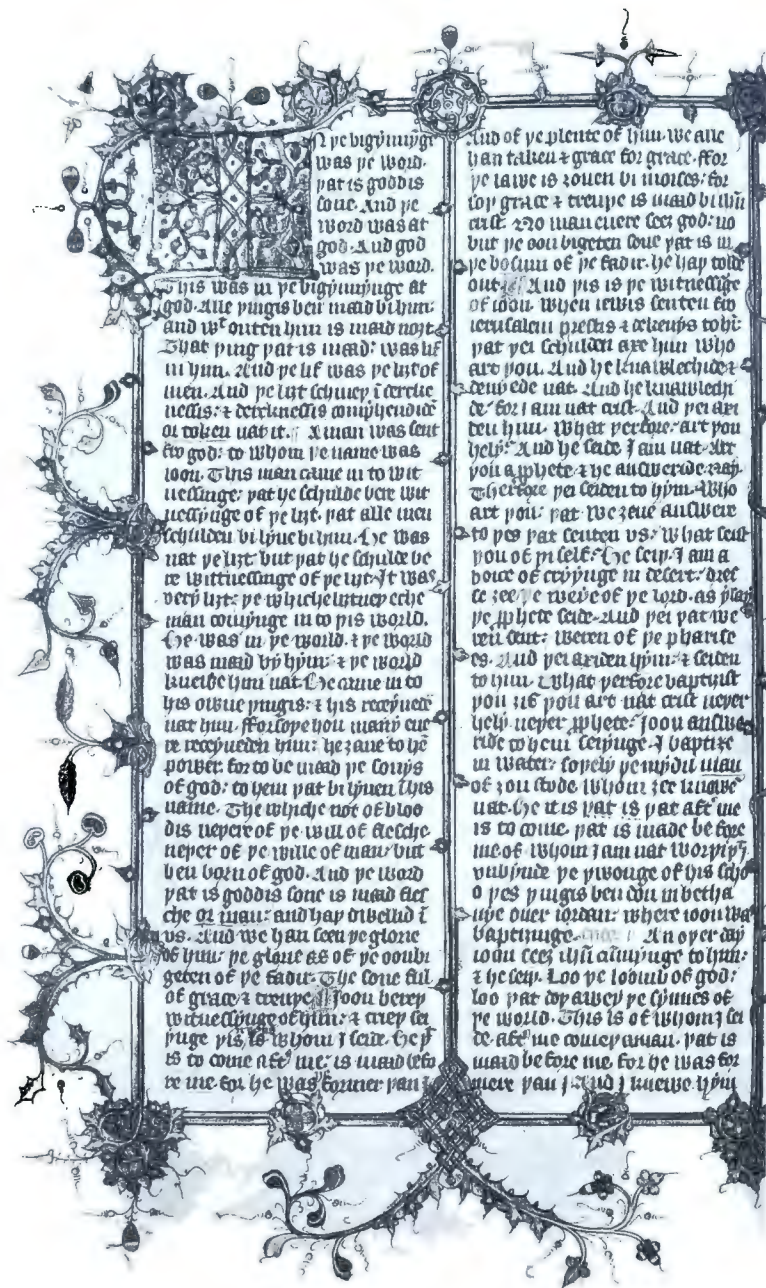 N þe bigẏnnẏnge
was þe word.
þat is goddis
sone. And þe
word was at
god. And god
was þe word.
This was in þe bigẏnnẏnge at
god. Alle þingis ben maad bi hẏm:
and wt outen hẏm is maad noȝt.
That þing þat is maad: was lif
in hẏm. And þe lif was þe liȝt of
men. And þe liȝt schineþ ī derke
nessis: ⁊ derknessis comprehendide
or token nat it. A man was sent
fro god: to whom þe name was
ioon. This man came in to wit
nessinge: þat he schulde bere wit
nessẏnge of þe liȝt. þat alle men
schulden bi lẏue bi hẏm. He was
nat þe liȝt. but þat he schulde be
re wittnessinge of þe liȝt. It was
verẏ liȝt: þe whiche liȝtneþ eche
man comẏnge in to þis world.
He was in þe world. ⁊ þe world
was maad bẏ hẏm: ⁊ þe world
knewe him nat. He came in to
his owne þingis: ⁊ his receẏuede
nat him. fforsoþe hou manẏ eue
re receẏueden him: he ȝaue to hē
power. for to be maad þe sonẏs
of god: to hem þat bi lẏuen ī his
name. The whiche not of bloo
dis neþer of þe will of flesche.
neþer of þe wille of man: but
ben born of god. And þe word
þat is goddis sone is maad fles
che or man: and haþ dwellid ī
vs. And we han seen þe glorie
of him: þe glorie as of þe oonbi
geten of þe fadir. The sone ful
of grace ⁊ treuþe. Joon bereþ
witnessẏnge of him: ⁊ crieþ sei
ẏnge þis is whom I seide. He þt
is to come aftr me: is maad befo
re me. for he was former þan I
And of þe plente of him. we alle
han taken ⁊ grace for grace. ffor
þe lawe is ȝouen bi moises: for
soþ grace ⁊ treuþe is maad bi ihū
crist. No man euere seeȝ god: no
but þe oon bigeten sone þat is in
þe bosum of þe fadir. he haþ tolde
out. And þis is þe witnessīge
of ioon. when iewis senten fro
ierusalem prestis ⁊ dekenẏs to hī:
þat þei schulden axe him who
art þou. And he knawlechide ⁊
denyede nat. And he knawlechi
de: for I am nat crist. And þei axi
den him. What þerfore. art þou
helẏ: And he seide I am nat. Art
þou a ꝓphete: ⁊ he answeride. naẏ.
Therfore þei seiden to hẏm. Who
art þou: þat we ȝeue answere
to þes þat senten vs: What seist
þou of þi self: He seiþ. I am a
voice of crẏẏnge in desert: dres
se ȝee þe weẏe of þe lord. as ẏsaẏ
þe ꝓphete seide. And þei þat we
ren sent: weren of þe pharise
es. And þei axiden hẏm: ⁊ seiden
to him. What þerfore baptisist
þou ȝif þou art nat crist neþer
helẏ neþer ꝓphete: ioon answe
ride to hem seiẏnge. I baptize
in water. soþelẏ þe mẏdil man
of ȝou stode. whom ȝee knowē
nat. He it is þat is þat aftr me
is to come. þat is made be fore
me. of whom I am nat worþi þt I
vnbẏnde þe þwonge of his scho
o þes þingis ben don in betha
nẏe ouer iordan: where ioon wa
baptizinge. An oþer daẏ
ioon seeȝ ihū comẏnge to him:
⁊ he seiþ. Loo þe loomb of god:
loo þat doþ aweẏ þe sẏnnes of
þe world. This is of whom I sei
de. aftr me comeþ a man. þat is
maad be fore me. for he was for
mere þan I. And I knewe hẏm